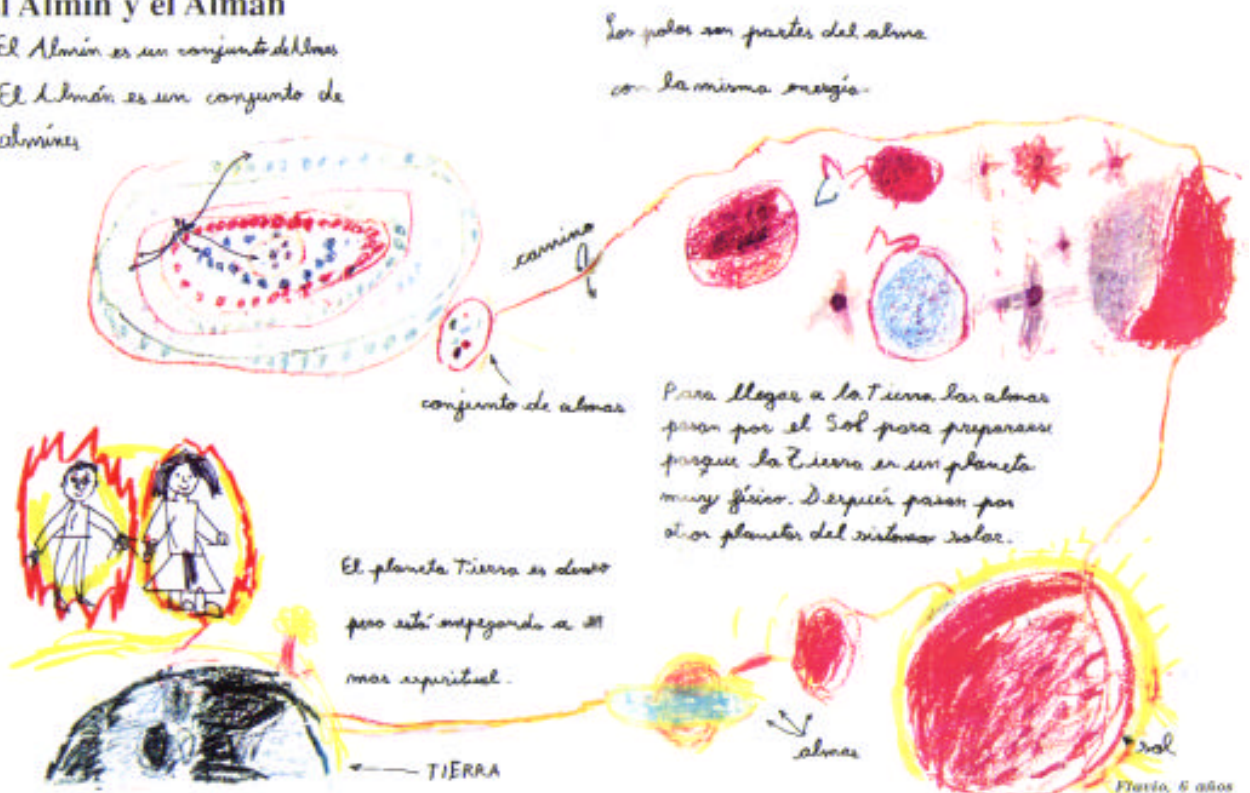 l Almin y el Alman
El Almín es un conjunto de Almas
El Almán es un conjunto de
almines
Los polos son partes del alma
con la misma energía.
camino
conjunto de almas
Para llegar a la Tierra las almas
pasan por el Sol para prepararse
porque la Tierra es un planeta
muy físico. Después pasan por
otros planetas del sistema solar.
El planeta Tierra es denso
pero está empezando a
mas espiritual.
almas
sol
TIERRA
Flavio, 6 años